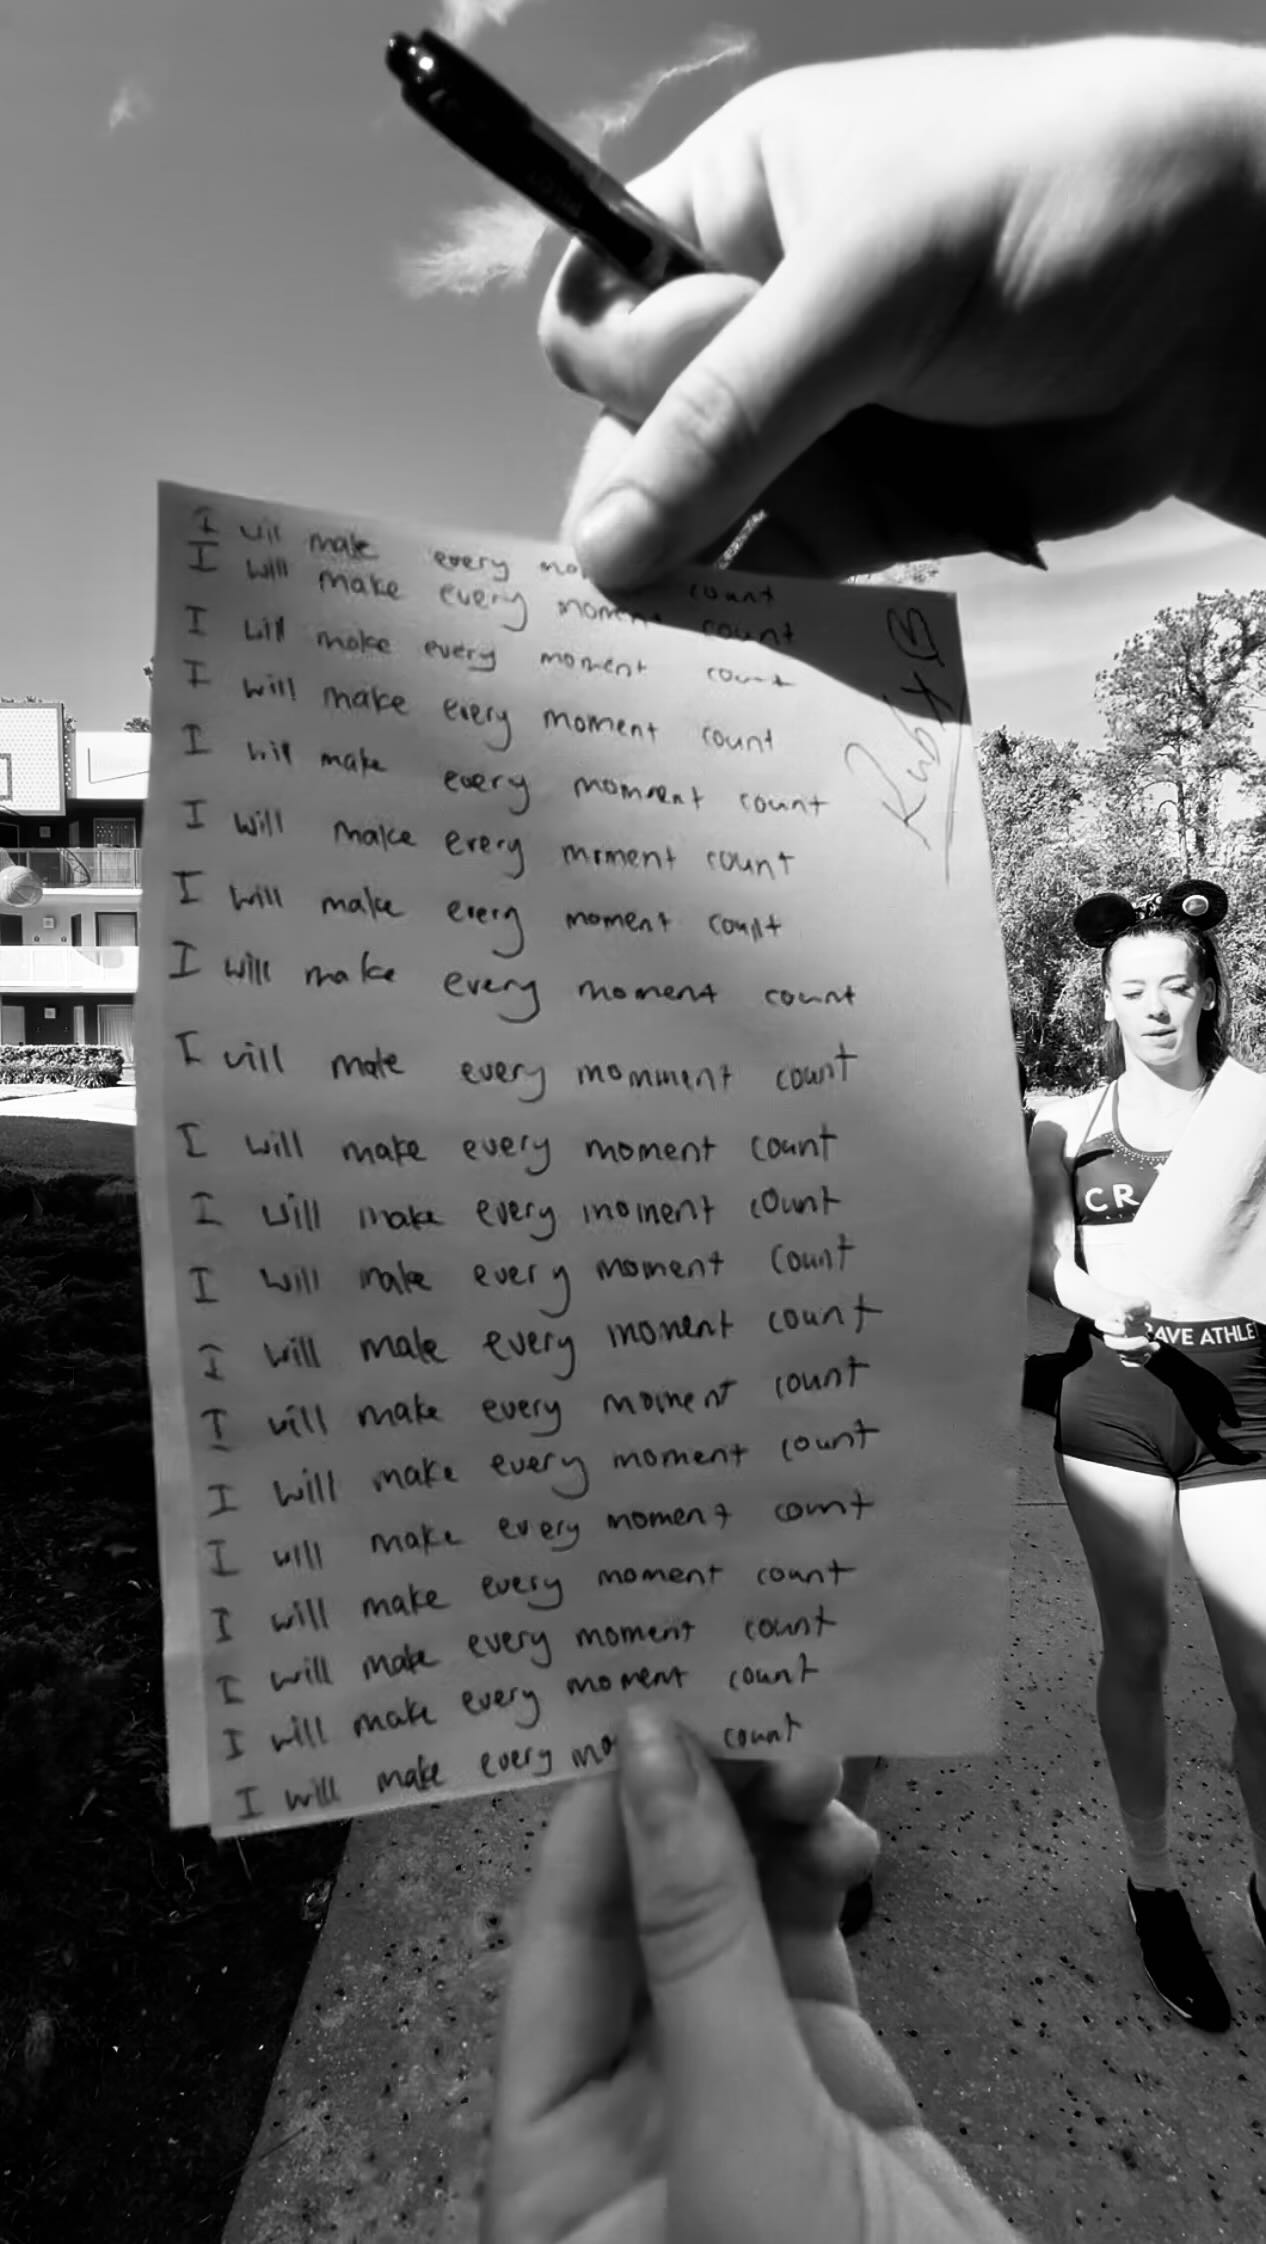 I will make every count
I will make every moment count
I will make every moment count
I will make every moment count
I will make every moment count
I will make every moment count
I will make every moment count
I will make every moment count
I will make every momment count
I will make every moment count
I will make every moment count
I will make every moment count
I will make every moment count
I will make every moment count
I will make every moment count
I will make every moment count
I will make every moment count
I will make every moment count
I will make every moment count
I will make every mo count
Ruby B
CR
RAVE ATHLE